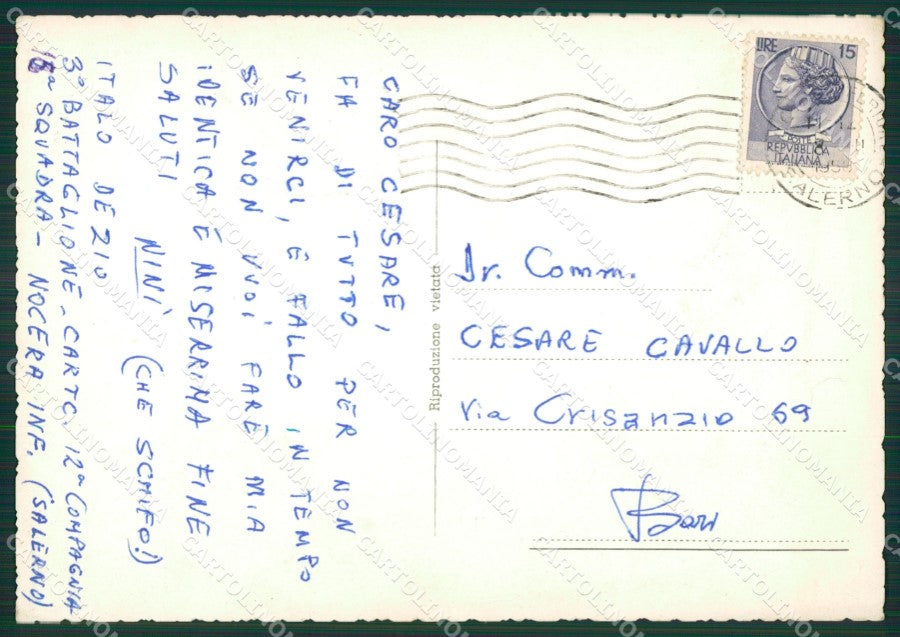 CARO CESARE,
FA DI TUTTO PER NON
VENIRCI, E FALLO IN TEMPO
SE NON VUOI FARE MIA
IDENTICA E MISERRIMA FINE
SALUTI
NINÍ (CHE SCHIFO!)
ITALO DEZIO
3º BATTAGLIONE - CARTC. 12ª COMPAGNIA
SQUADRA - NOCERA INF. (SALERNO)
Riproduzione vietata
LIRE 15
POSTE
REPVBBLICA
ITALIANA
SALERNO
Comm.
CESARE CAVALLO
Via Crisanzio 69
Bari
CARTOLINOMANIA